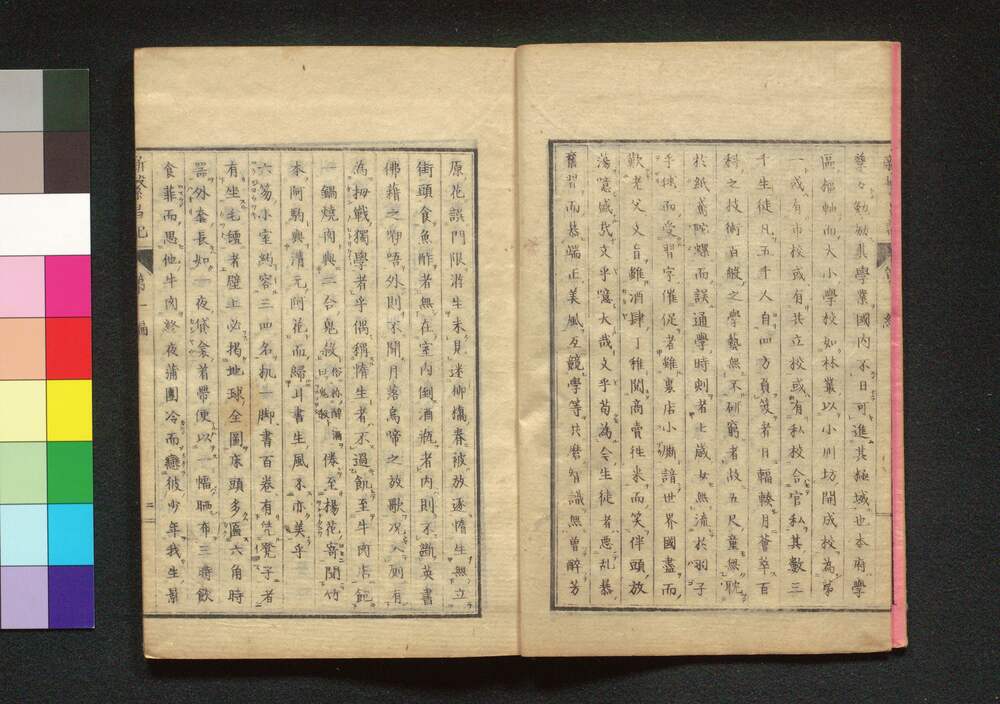 孳々勉勵其學業國内不日可進其極域也本府學
區樞軸而大小學校如林叢以小川坊開成校為第
一或有市校或有共立校或有私校合官私其數三
千生徒凡五千人自四方負笈者日輻輳月薈萃百
科之技術百般之學藝無不研窮者故五尺童無耽
於紙鳶陀螺而誤通學時刻者七歳女無流於羽子
手毬而受習字催促者雖裏店小廝諳世界國盡而
歎老父文盲雖酒肆丁稚閲高賣徃来而笑伴頭放
蕩噫盛哉文乎噫大哉文乎苟為今生徒者悪乱暴
舊習而慕端正美風互競學等共磨智識無曽醉芳
原花誤門限游生未見迷柳橋春被放逐惰生無立
街頭食魚酢者無在室内倒酒瓶者内則不讀英書
佛籍之咿唔外則不聞月落烏啼之放歌况入則有
為拇戰獨學者乎偶稱惰生者不過飢至牛肉店飽
一鍋燒肉與二合鬼殺 俗称酔酒曰鬼殺 倦至楊花寄聞竹
本阿駒與清元阿花而歸耳書生風采亦美乎
六昜小室約容三四名机一脚書百巻有凭凳子者
有坐毛氊者壁上必掲地球全圖床頭多匾六角時
器外套長如一夜衾着帶便以一幅晒布三時飲
食菲而思他牛肉終夜蒲團冷而戀彼少年我生景
新繁昌記
第一編
二